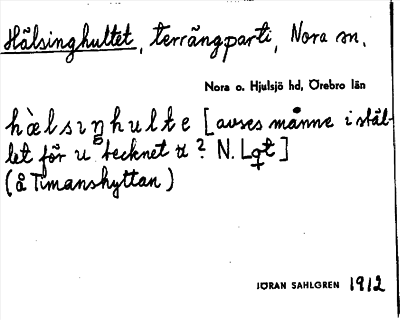 Hälsinghultet, terrängparti, Nora sn.
Nora o. Hjulsjö hd, Örebro län
hæ̀lsıŋhulte [avses månne i stäl-
let för u tecknet ʉ? N. Lqt]
(å Timanshyttan)
JÖRAN SAHLGREN 1912